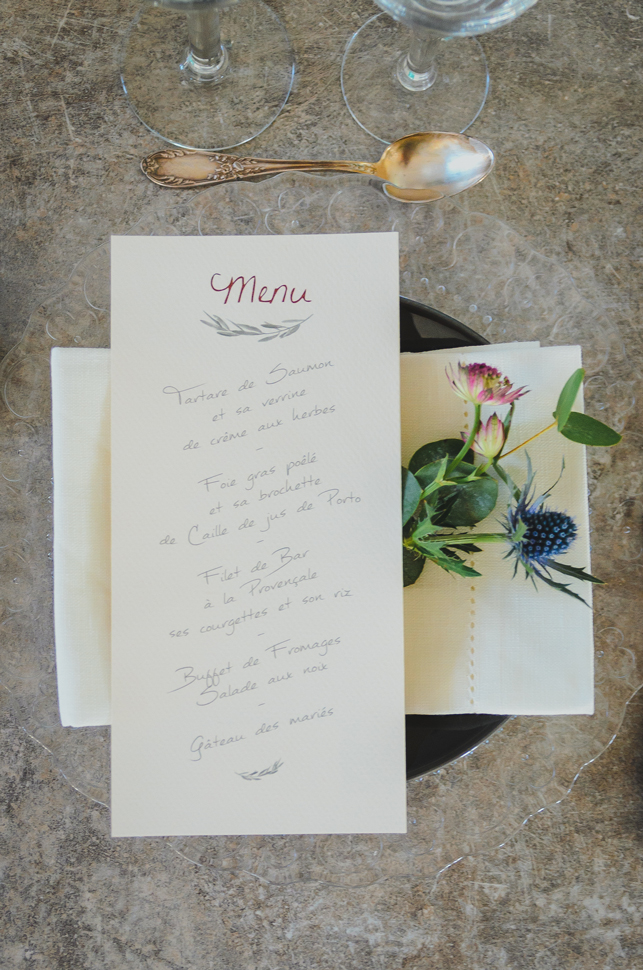 Menu
Tartare de Saumon
et sa verrine
de crème aux herbes
-
Foie gras poêlé
et sa brochette
de Caille de jus de Porto
-
Filet de Bar
à la Provençale
ses courgettes et son riz
-
Buffet de Fromages
Salade aux noix
-
Gâteau des mariés